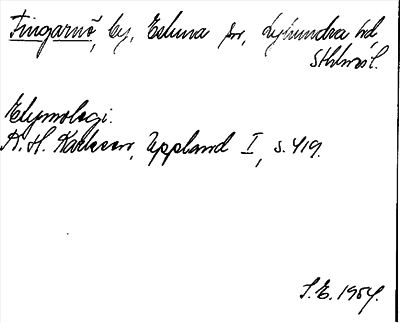 Fingarnö, by, Estuna sn, Lyhundra hd
Sthlms l.
Etymologi.
K. H. Karlsson, Uppland I, s. 419.
S. E. 1954.